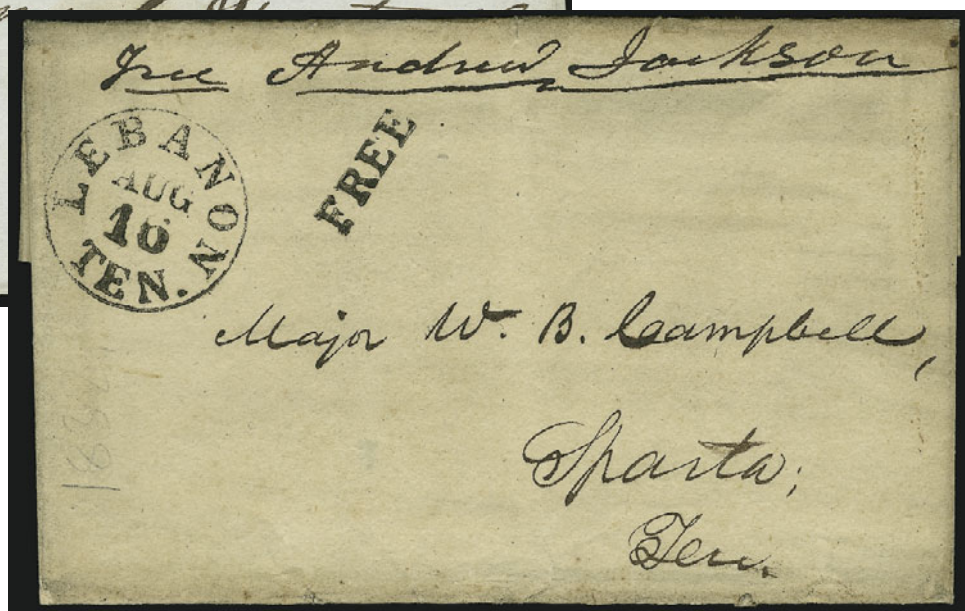 Free Andrew Jackson
FREE
LEBANON
AUG
16
TEN.
Major W. B. Campbell,
Sparta;
Ten.